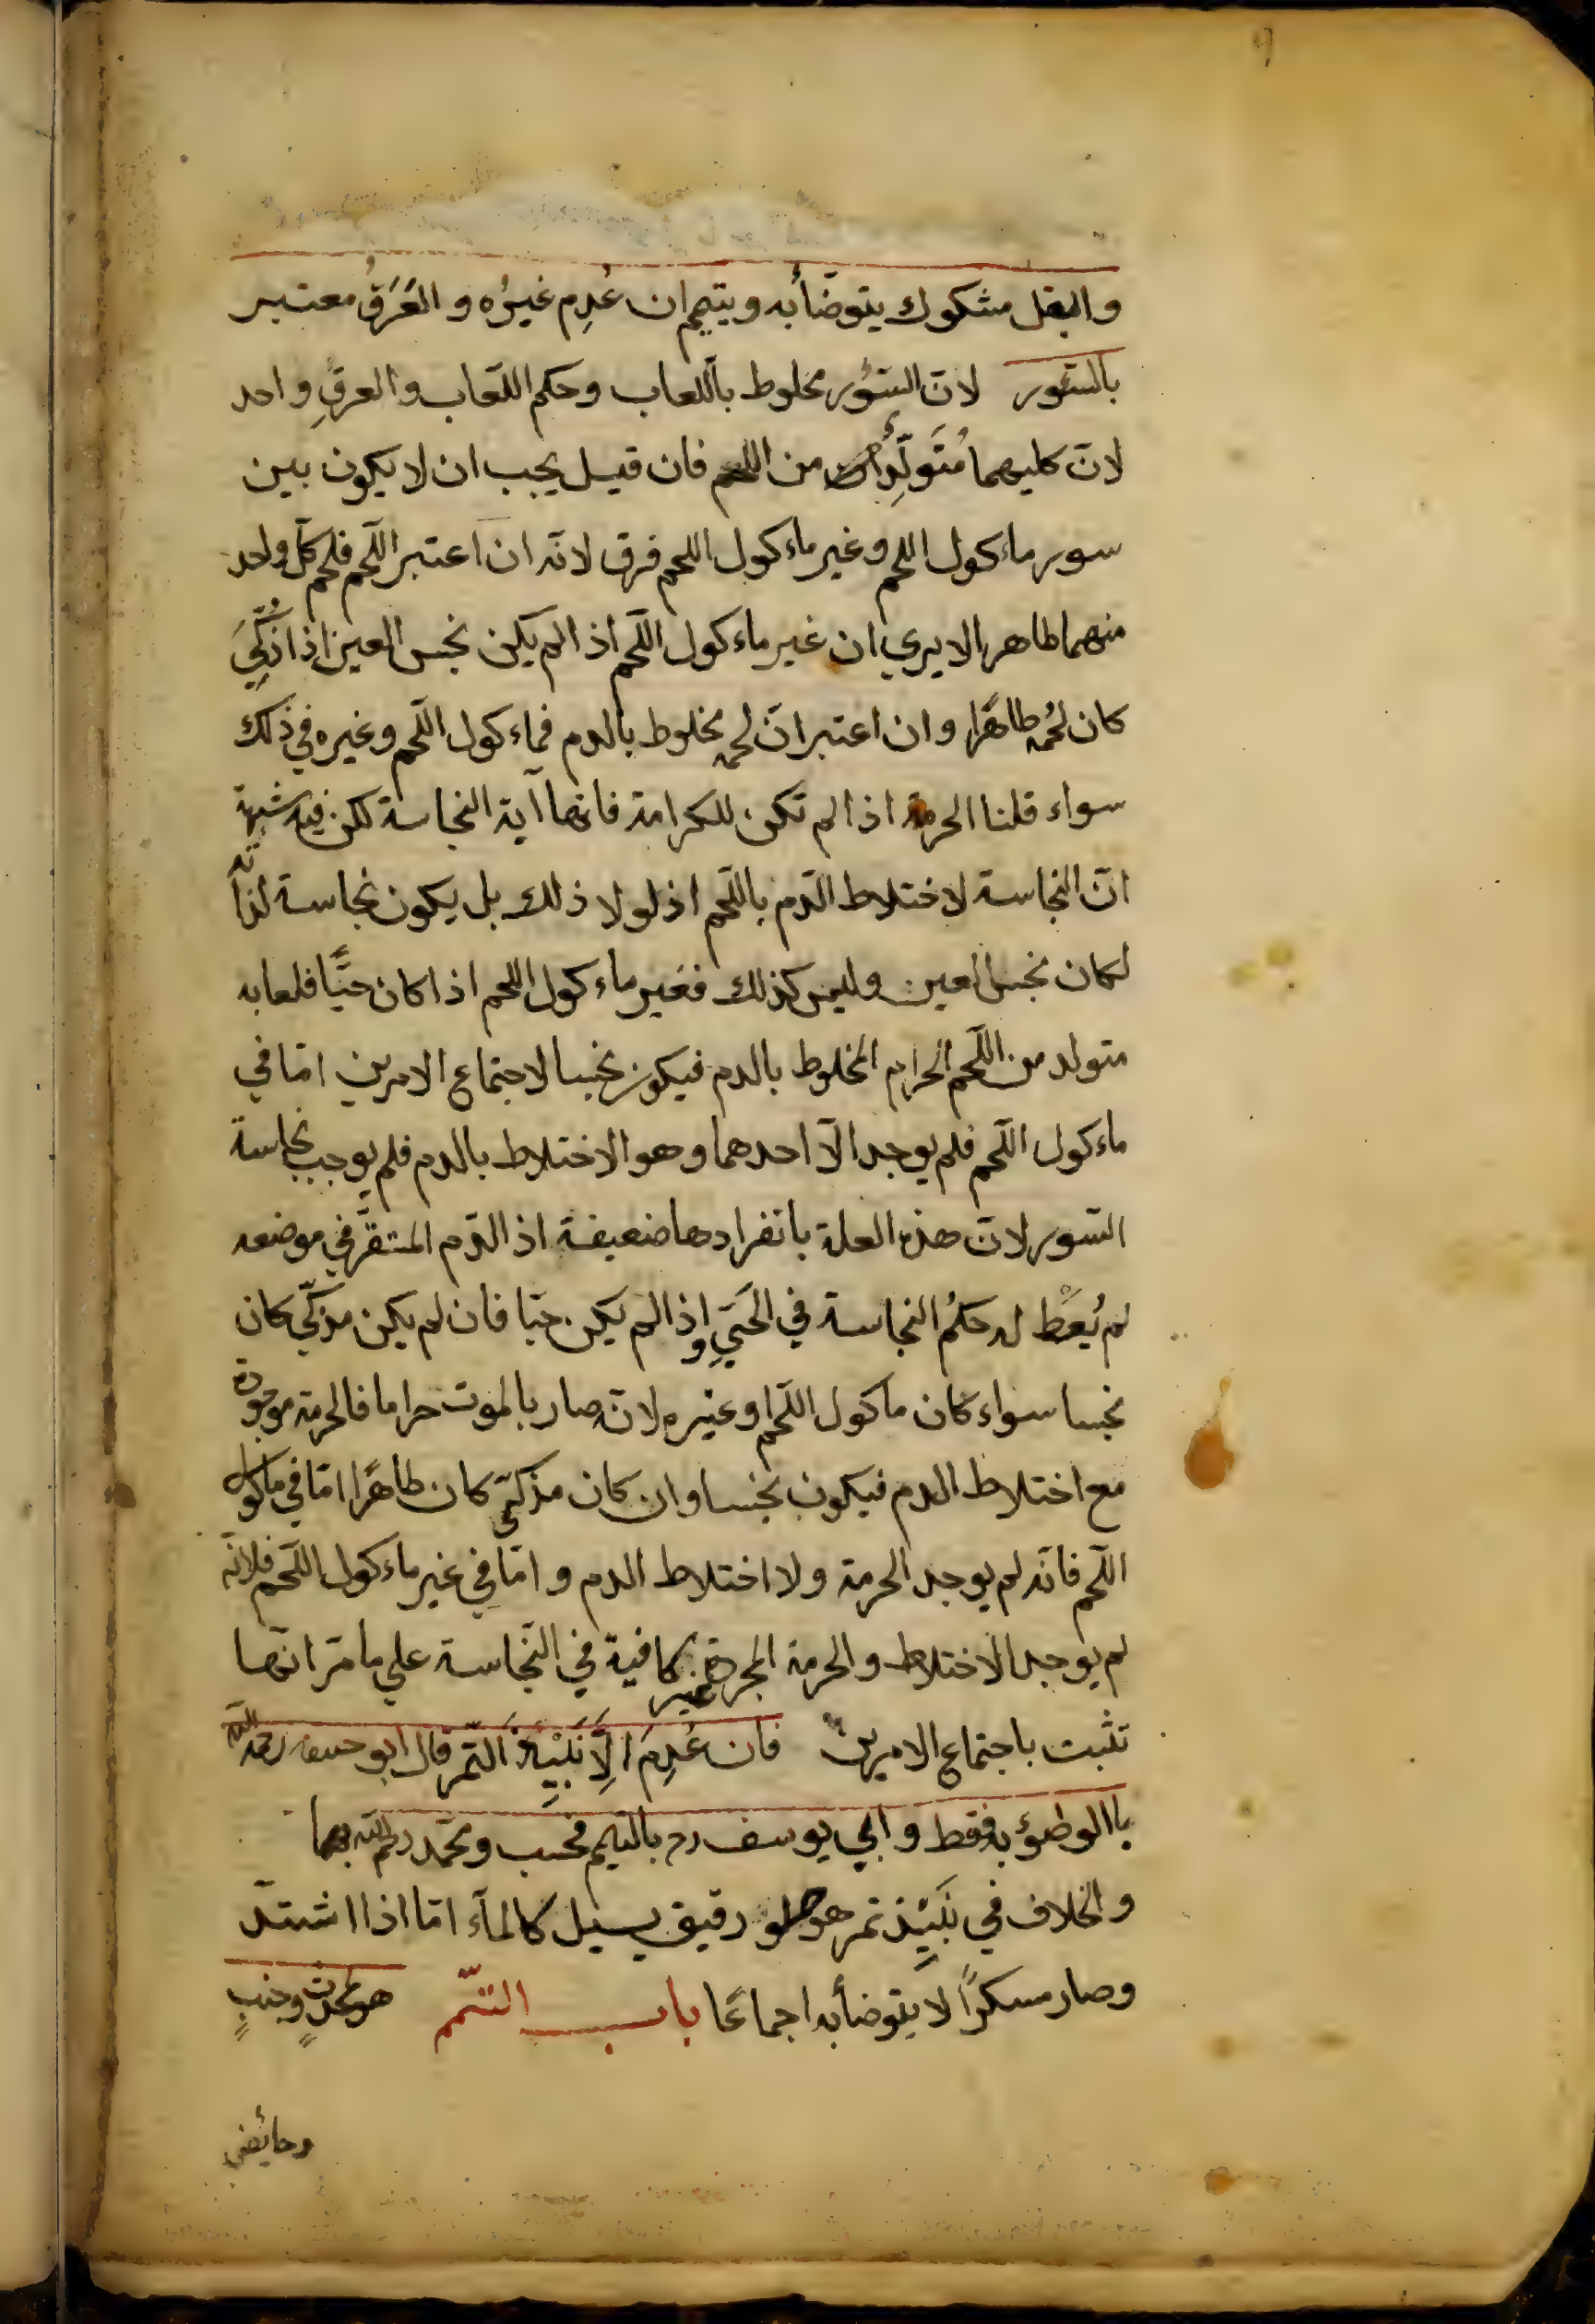 ٩
والبغل مشكوك يتوضأ به ويتيمم ان عُدِم غيرُه والعَرَقُ معتبر
بالسّور لانّ السّؤر مخلوط باللعاب وحكم اللّعاب والعرقِ واحد
لانّ كليهما مُتَولّد من اللحم فان قيل يجب ان لا يكون بين
سور ماءكول اللحم وغير ماءكول اللحم فرق لانّه ان اعتبر اللّحم فلحم كلّ واحد
منهما طاهر الا يري ان غير ماءكول اللّحم اذا لم يكن نجس العين اذا ذُكِّيَ
كان لحُمه طاهرًا وان اعتبر انّ لحمه مخلوط بالدم فماءكول اللّحم وغيره في ذلك
سواء قلنا الحرمة اذا لم تكن للكرامة فانها آية النجاسة لكن فيه شبهة
انّ النجاسة لاختلاط الدّم باللّحم اذ لولا ذلك بل يكون نجاسة لذاته
لكان نجس العين وليس كذلك فغير ماءكول اللحم اذا كان حيًّا فلعابه
متولد من اللّحم الحرام المخلوط بالدم فيكون نجسا لاجتماع الامرين امّا في
ماءكول اللّحم فلم يوجد الّا احدهما وهو الاختلاط بالدم فلم يوجب نجاسة
السّور لانّ هذه العلة بانفرادها ضعيفة اذ الدّم المستقرّ في موضعه
لم يُعْطَ له حكمُ النجاسة في الحَيّ واذا لم يكن حيّا فان لم يكن مذكّي كان
نجسا سواء كان ماكول اللّحم او غيره لانّه صار بالموت حراما فالحرمة موجودة
مع اختلاط الدم فيكون نجسا وان كان مذكّي كان طاهرًا امّا في ماكول
اللّحم فانّه لم يوجد الحرمة ولا اختلاط الدم وامّا في غير ماءكول اللّحم فلانّه
لم يوجد الاختلاط والحرمة المجردة غير كافية في النّجاسة علي ما مرّ انّها
تثبت باجتماع الامرين فان عُدِمَ الَّا نَبِيْذَ التّمر قال ابو حنيفه رحمه الله
باالوطؤ به فقط وابي يوسف رح بالتيمم فحسب ومحمّد رحمه الله بهما
والخلاف في نَبِيْذ تمر هو حلو رقيق يسيل كالمآء امّا اذا اشتدّ
وصار مسكرًا لا يتوضأ به اجماعًا باب التيمّم هو لمحدثٍ وجنبٍ
وحائض